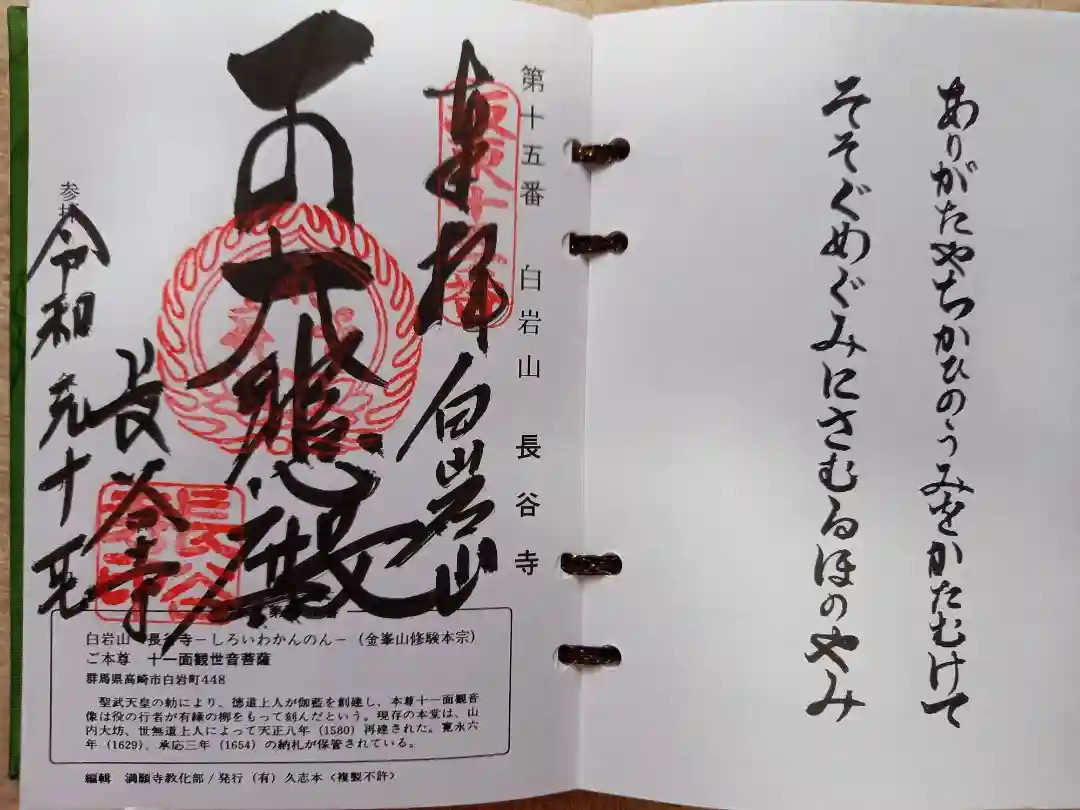 ありがたやちかひのうみをかたむけて
そそぐめぐみにさむるほのやみ
第十五番 白岩山 長谷寺
奉拝 白岩山
坂東十五番
大悲殿
長谷寺
長谷寺
参拝
令和元 十
白岩山 長谷寺－しろいわかんのん－（金峯山修験本宗）
ご本尊 十一面観世音菩薩
群馬県高崎市白岩町448
聖武天皇の勅により、徳道上人が伽藍を創建し、本尊十一面観音
像は役の行者が有縁の柳をもって刻んだという。現存の本堂は、山
内大坊、世無道上人によって天正八年（1580）再建された。寛永六
年（1629）、承応三年（1654）の納札が保管されている。
編輯 満願寺教化部/発行（有）久志本〈複製不許〉